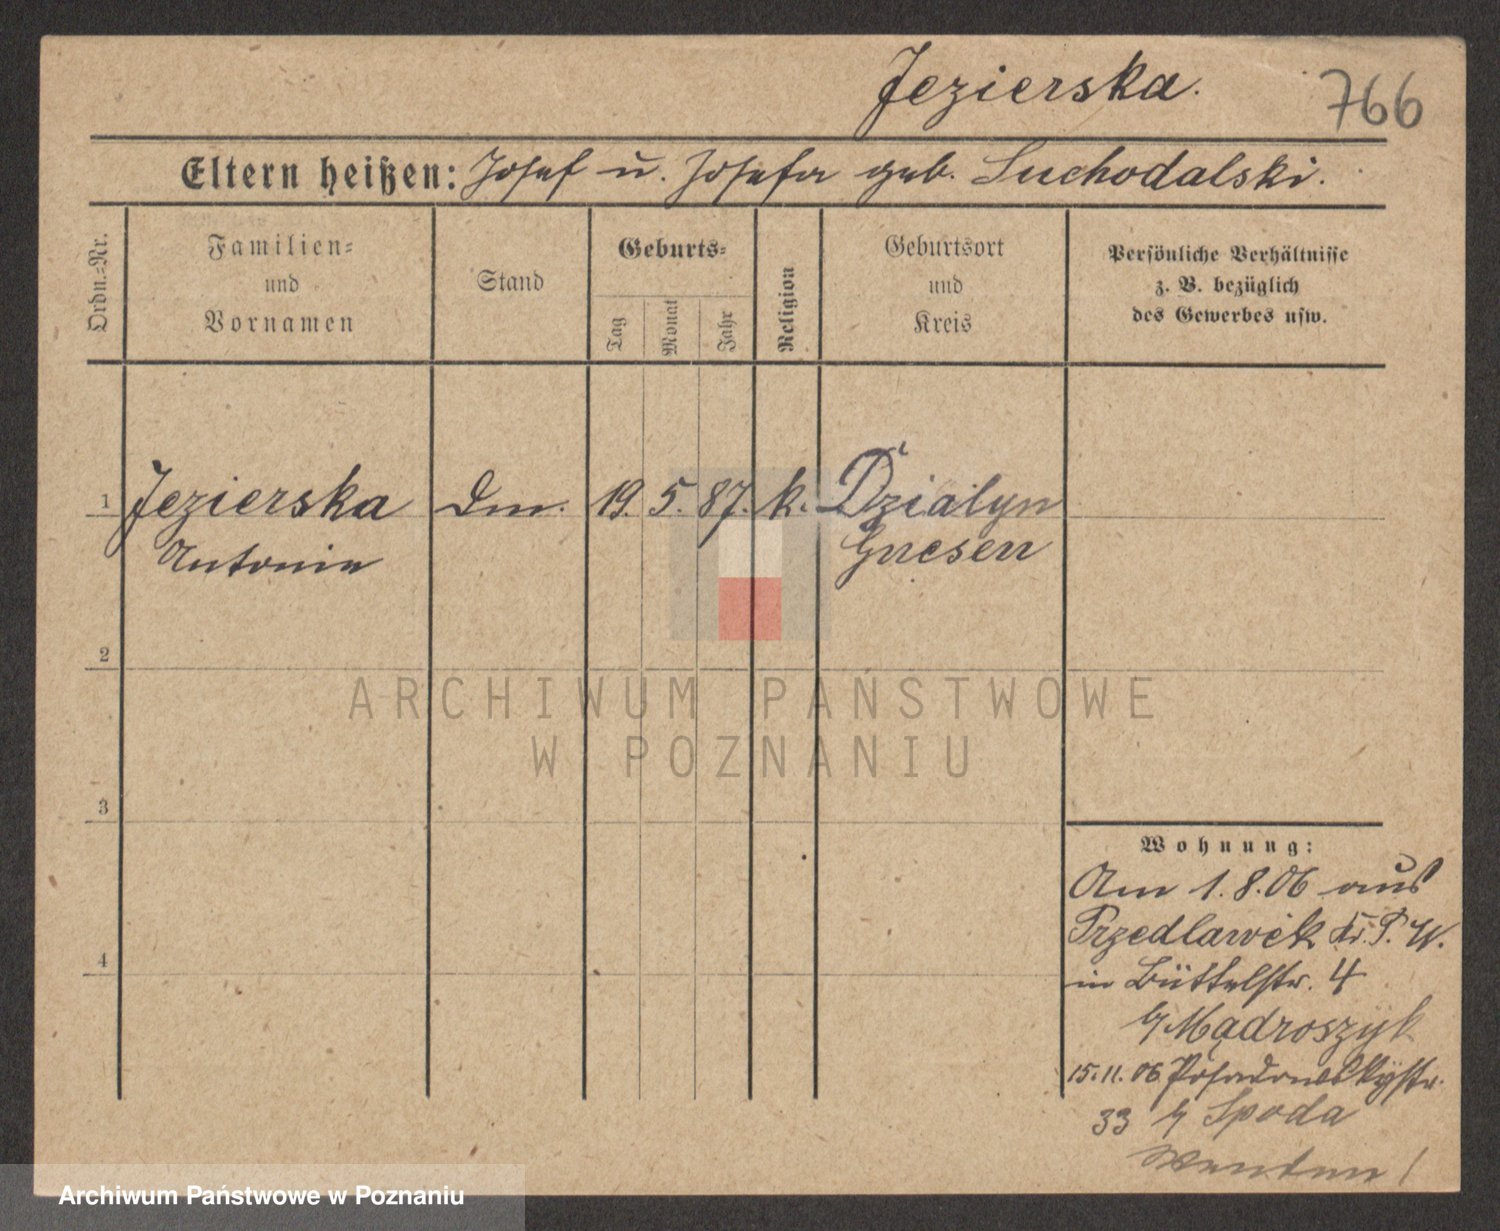 Jezierska.
766
Eltern heißen: Josef u. Josefa geb. Suchodalski.
Ordn.=Nr.
Familien=
und
Vornamen
Stand
Geburts=
Tag
Monat
Jahr
Religion
Geburtsort
und
Kreis
Persönliche Verhältnisse
z. B. bezüglich
des Gewerbes usw.
1 Jezierska Dm. 19. 5. 87. k. Dzialyn
Antonie Gnesen
2
3
4
Wohnung:
Am 1.8.06 aus
Przedlawek Kr. P. W.
in Büttelstr. 4
b/ Mądroszyk
15.11.06 Posadowskystr.
33 b/ Spoda
ARCHIWUM PAŃSTWOWE
W POZNANIU
Archiwum Państwowe w Poznaniu